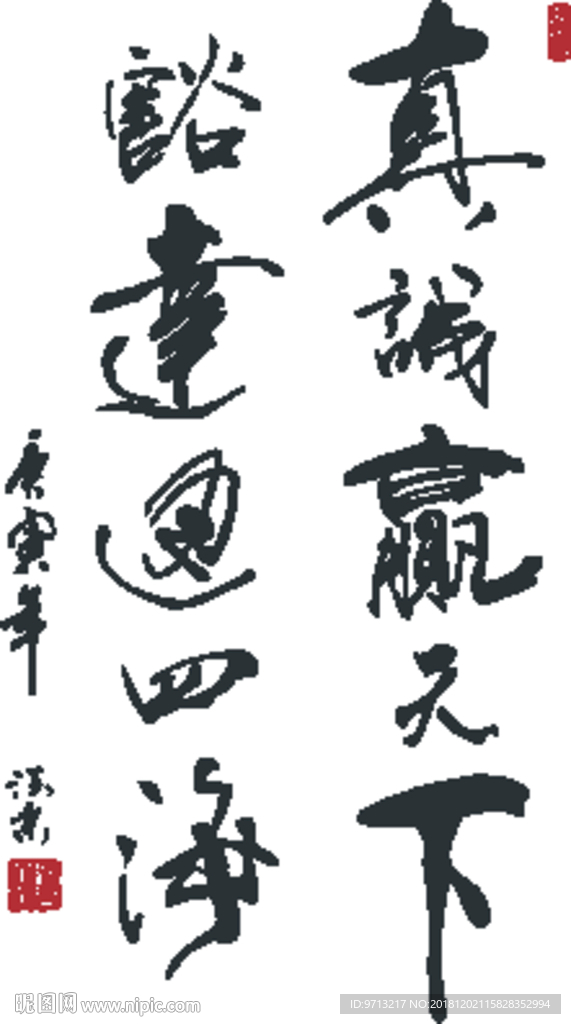 真誠贏天下
豁達通四海
庚寅年
昵图网 www.nipic.com
ID:9713217 NO:20181202115828352994